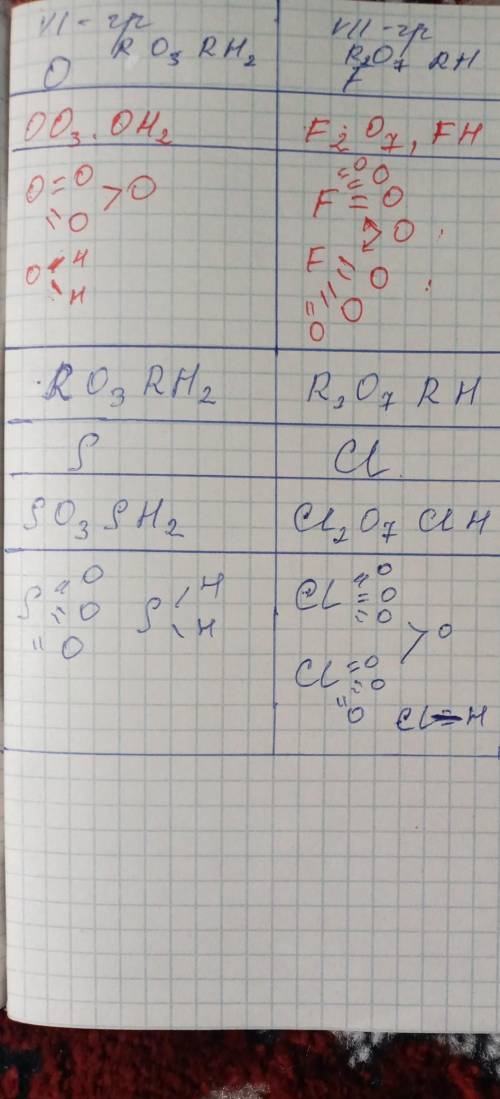 VI - гр
RO3 RH2
O
VII - гр
R2O7 RH
F
OO3. OH2
F2O7, FH
O = O
= O > O
O H
H
= O O
F = O
> O
F = O
= O
= O
RO3 RH2
R2O7 RH
S
Cl
SO3 SH2
Cl2O7 ClH
S = O
= O
= O
S H
H
Cl = O
= O
= O
> O
Cl = O
= O
= O
Cl - H